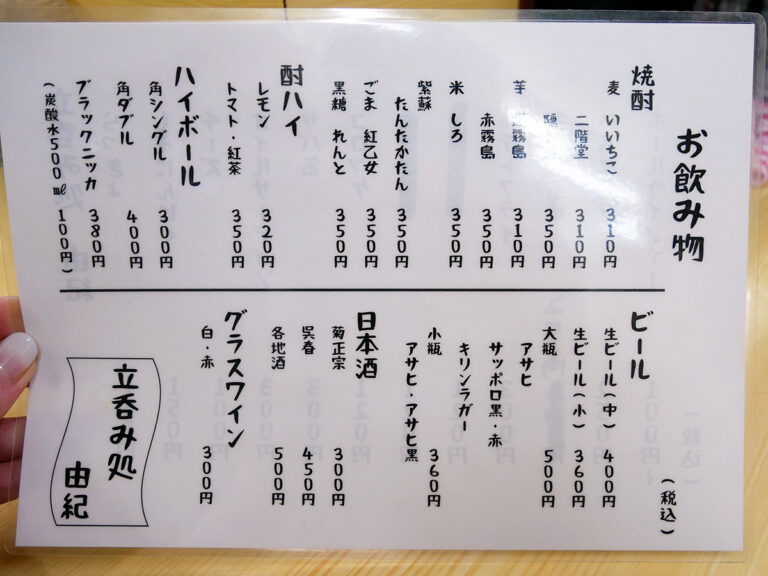 お飲み物
焼酎
麦 いいちこ 310円
二階堂 310円
350円
芋 霧島 310円
赤霧島 350円
米 しろ 350円
紫蘇 たんたかたん 350円
ごま 紅乙女 350円
黒糖 れんと 350円
酎ハイ
レモン 320円
トマト・紅茶 350円
ハイボール
角シングル 300円
角ダブル 400円
ブラックニッカ 380円
(炭酸水500㎖ 100円)
(税込)
ビール
生ビール(中) 400円
生ビール(小) 360円
大瓶 500円
アサヒ
サッポロ黒・赤
キリンラガー
小瓶 360円
アサヒ・アサヒ黒
日本酒
菊正宗 300円
呉春 450円
各地酒 500円
グラスワイン
白・赤 300円
立呑み処
由紀